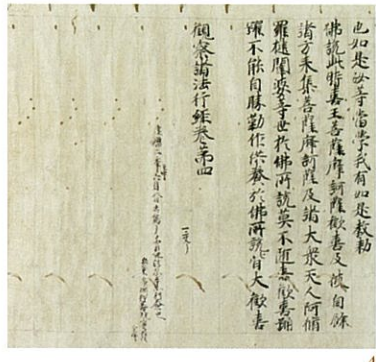 也如是汝等當學我有如是教勅
佛說此時喜王菩薩摩訶薩歡喜及彼自餘
諸方來集菩薩摩訶薩及諸大衆天人阿脩
羅揵闥婆等世於佛所說莫不隨喜歡喜踊
躍不能自勝勤作供養於佛所說皆大歡喜
觀察諸法行經卷第四
一交了